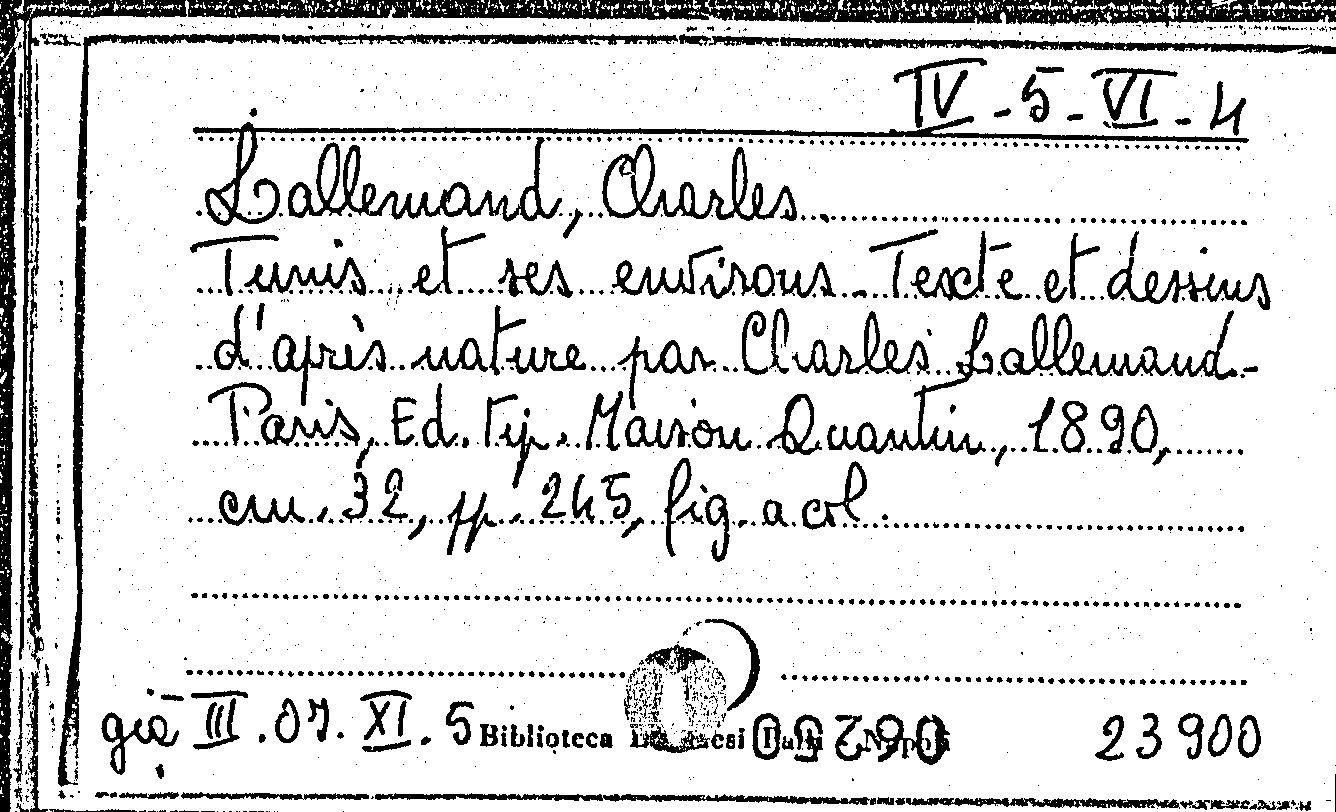 IV - 5 - VI - 4
Lallemand, Charles.
Tunis et ses environs - Texte et dessins
d'après nature par Charles Lallemand -
Paris, Ed. Tip. Maison Quantin, 1890,
cm. 32, pp. 245, fig. a col.
già III . 07. XI . 5 Biblioteca Napoli 23900